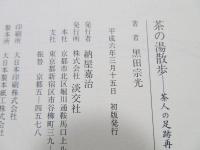 茶の湯散歩 茶人の足跡再
著者 黒田宗光
平成六年三月十五日 初版発行
発行者 納屋嘉治
発行所 株式会社 淡交社
本社 京都市北区堀川通鞍馬口上ル
支社 東京都新宿区市谷柳町三九
振替 京都五―四五七八
印刷所 大日本印刷株式会
製本所 大日本製本紙工株式